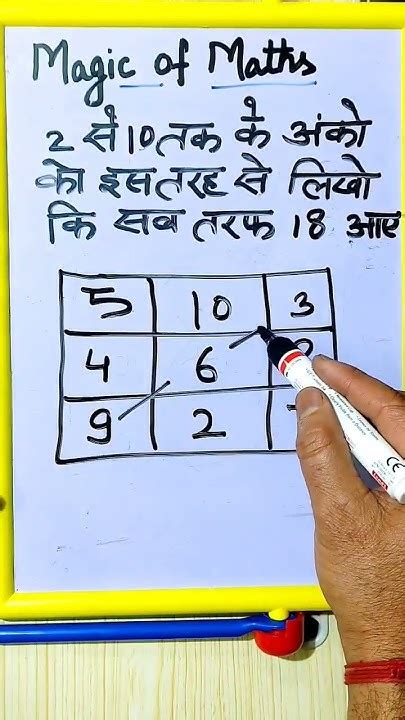 Magic of Maths
2 से 10 तक के अंको
को इस तरह से लिखो
कि सब तरफ 18 आए
5 10 3
4 6
9 2